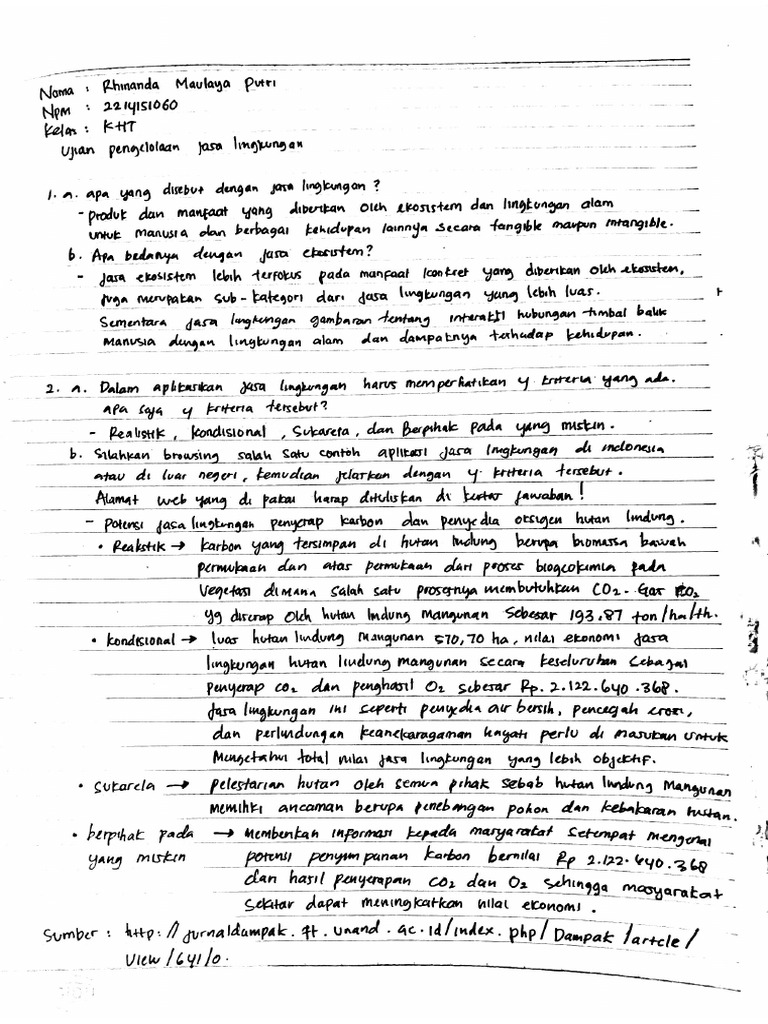 Nama : Rhinanda Maulaya Putri
Npm : 2214151060
Kelas : KHT
Ujian pengelolaan jasa lingkungan
1. a. apa yang disebut dengan jasa lingkungan ?
- produk dan manfaat yang diberikan oleh ekosistem dan lingkungan alam
untuk manusia dan berbagai kehidupan lainnya secara tangible maupun intangible.
b. Apa bedanya dengan jasa ekosistem?
- jasa ekosistem lebih terfokus pada manfaat konkret yang diberikan oleh ekosistem,
juga merupakan sub-kategori dari jasa lingkungan yang lebih luas.
Sementara jasa lingkungan gambaran tentang interaksi hubungan timbal balik
manusia dengan lingkungan alam dan dampaknya terhadap kehidupan.
2. a. Dalam aplikasikan jasa lingkungan harus memperhatikan 4 kriteria yang ada.
apa saja 4 kriteria tersebut?
- Realistik, kondisional, Sukarela, dan Berpihak pada yang miskin.
b. Silahkan browsing salah satu contoh aplikasi jasa lingkungan di indonesia
atau di luar negeri, kemudian jelaskan dengan 4 kriteria tersebut.
Alamat web yang di pakai harap dituliskan di kertas jawaban!
- Potensi jasa lingkungan penyerap karbon dan penyedia oksigen hutan lindung.
• Realistik → karbon yang tersimpan di hutan lindung berupa biomassa bawah
permukaan dan atas permukaan dari proses biogeokimia pada
vegetasi dimana salah satu prosesnya membutuhkan CO2. Gas CO2
yg diserap oleh hutan lindung Mangunan sebesar 193,87 ton/ha/th.
• kondisional → luas hutan lindung mangunan 570,70 ha, nilai ekonomi jasa
lingkungan hutan lindung mangunan secara keseluruhan sebagai
penyerap CO2 dan penghasil O2 sebesar Rp. 2.122.640.368.
jasa lingkungan ini seperti penyedia air bersih, pencegah erosi,
dan perlindungan keanekaragaman hayati perlu di masukan untuk
mengetahui total nilai jasa lingkungan yang lebih objektif.
• sukarela → pelestarian hutan oleh semua pihak sebab hutan lindung Mangunan
memiliki ancaman berupa penebangan pohon dan kebakaran hutan.
• berpihak pada → memberikan informasi kepada masyarakat setempat mengenai
yang miskin potensi penyimpanan karbon bernilai Rp 2.122.640.368
dan hasil penyerapan CO2 dan O2 sehingga masyarakat
sekitar dapat meningkatkan nilai ekonomi.
Sumber : http://jurnaldampak.ft.unand.ac.id/index.php/Dampak/artcle/
view/641/0.